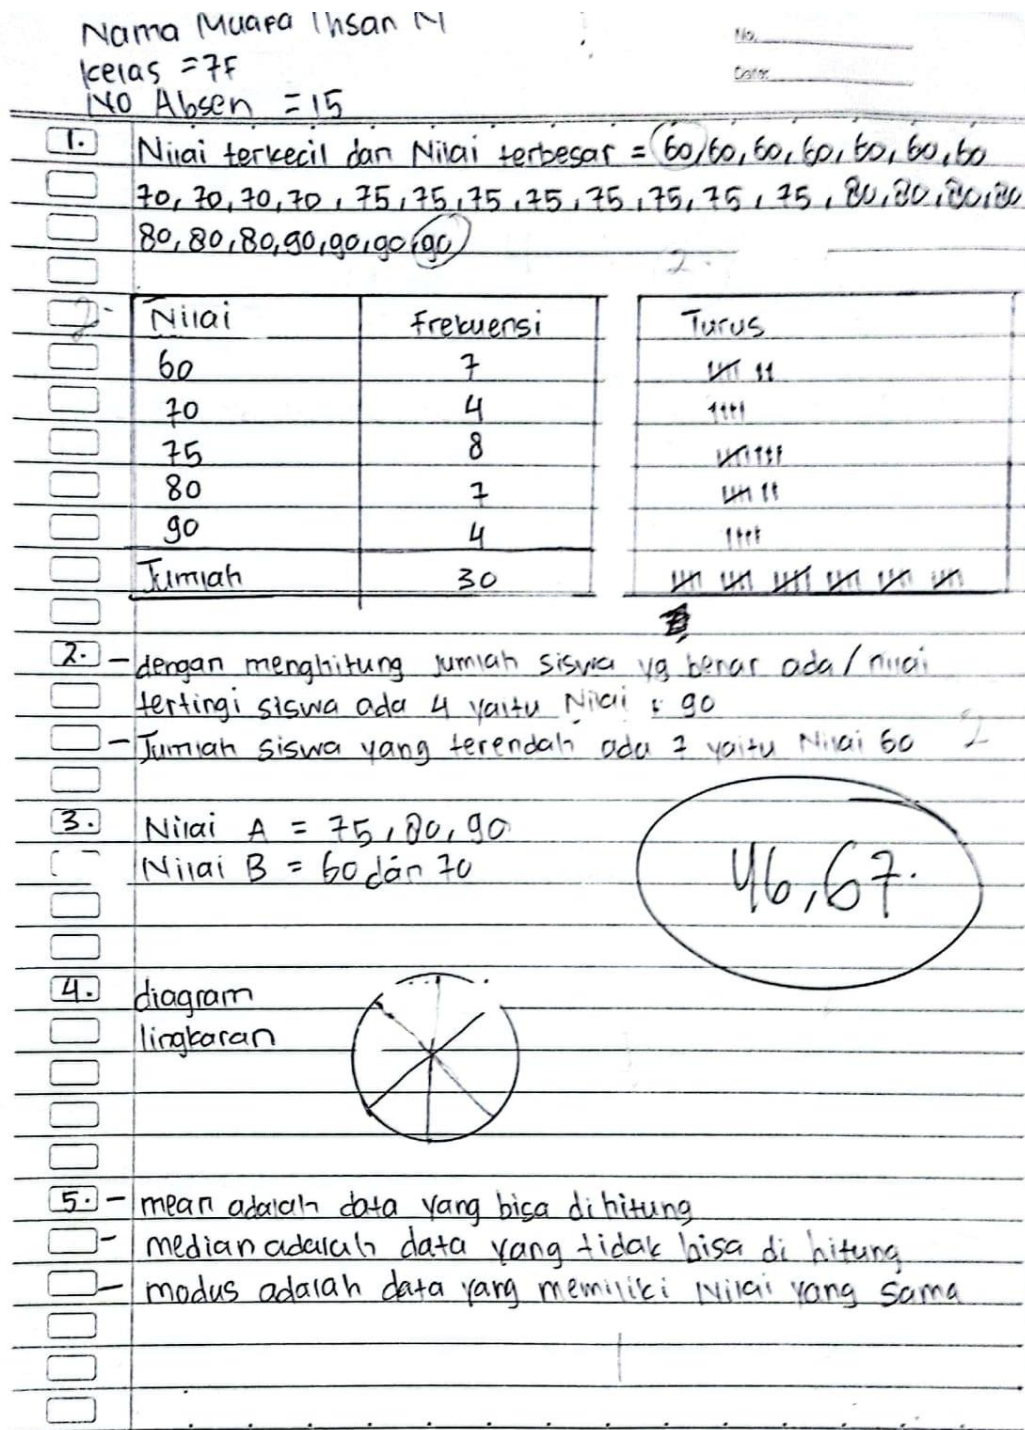 Nama Muara Ihsan M
No.
Date:
kelas = 7F
No Absen = 15
1. Nilai terkecil dan Nilai terbesar = 60, 60, 60, 60, 60, 60, 60
70, 70, 70, 70, 75, 75, 75, 75, 75, 75, 75, 75, 80, 80, 80, 80
80, 80, 80, 90, 90, 90, 90
2.
2. Nilai Frekuensi Turus
60 7
70 4
75 8
80 7
90 4
Jumlah 30
2. - dengan menghitung jumlah siswa yg benar ada / nilai
tertingi siswa ada 4 yaitu Nilai : 90
- Jumlah siswa yang terendah ada 7 yaitu Nilai 60 2
3. Nilai A = 75, 80, 90
Nilai B = 60 dan 70
46,67.
4. diagram
lingkaran
5. - mean adalah data yang bisa di hitung
- median adalah data yang tidak bisa di hitung
- modus adalah data yang memiliki Nilai yang sama